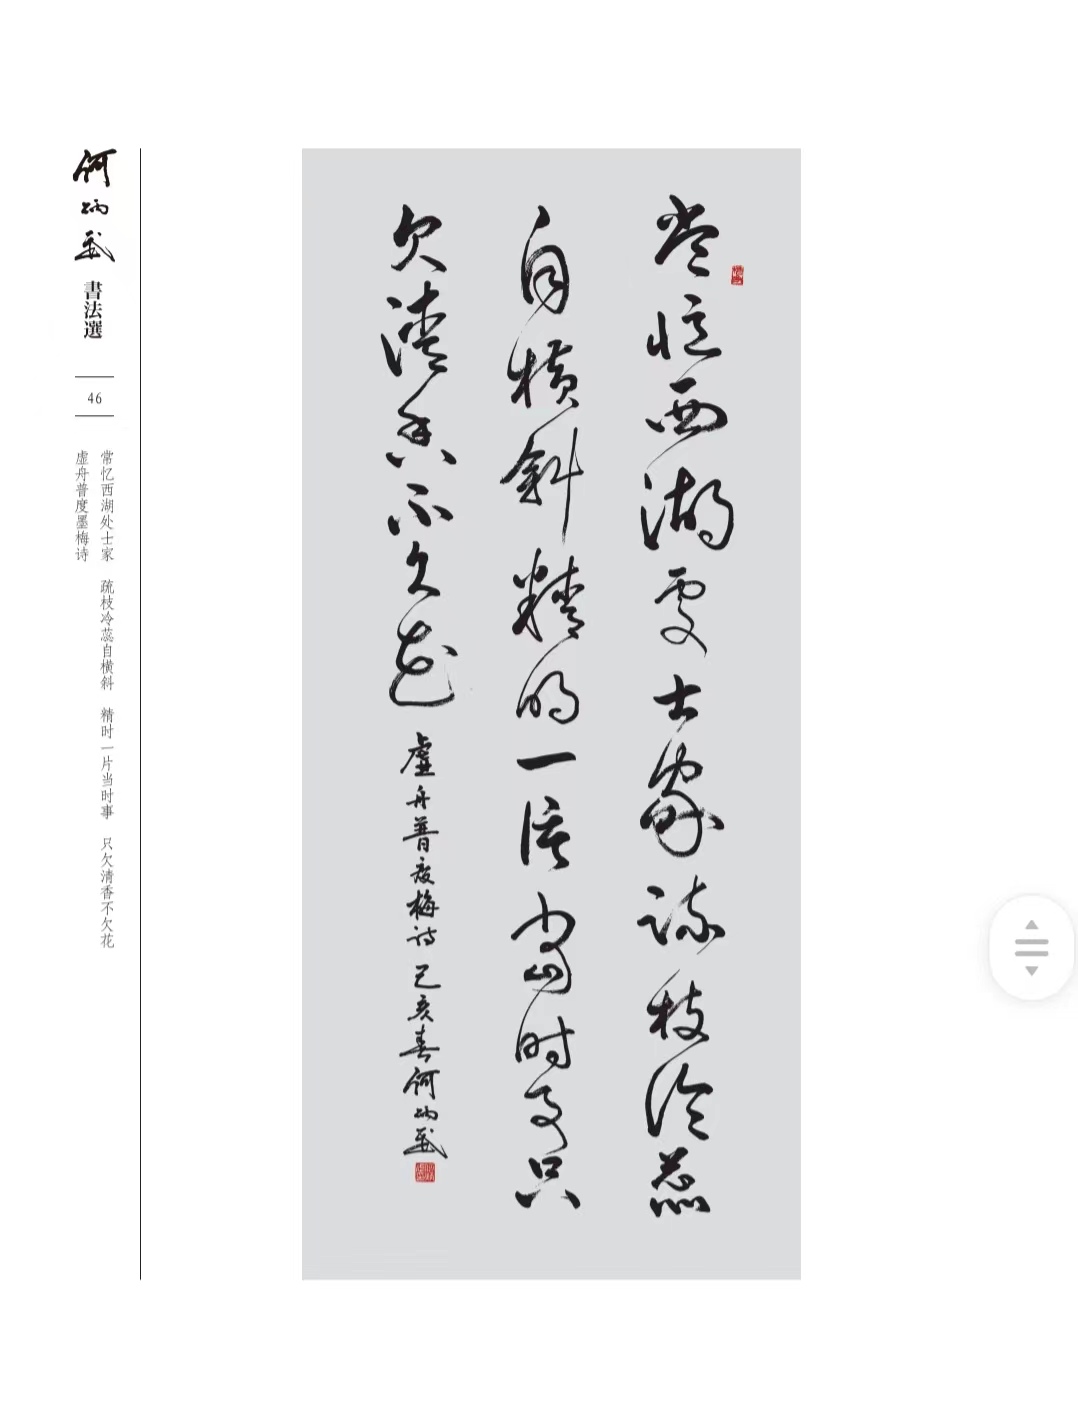 常憶西湖處士家疏枝冷蕊
自橫斜精明一當時事只
欠清香不欠花 虛舟普度梅詩 己亥春何炳武
何炳武書法選
46
常忆西湖处士家 疏枝冷蕊自横斜 精时一片当时事 只欠清香不欠花
虚舟普度墨梅诗